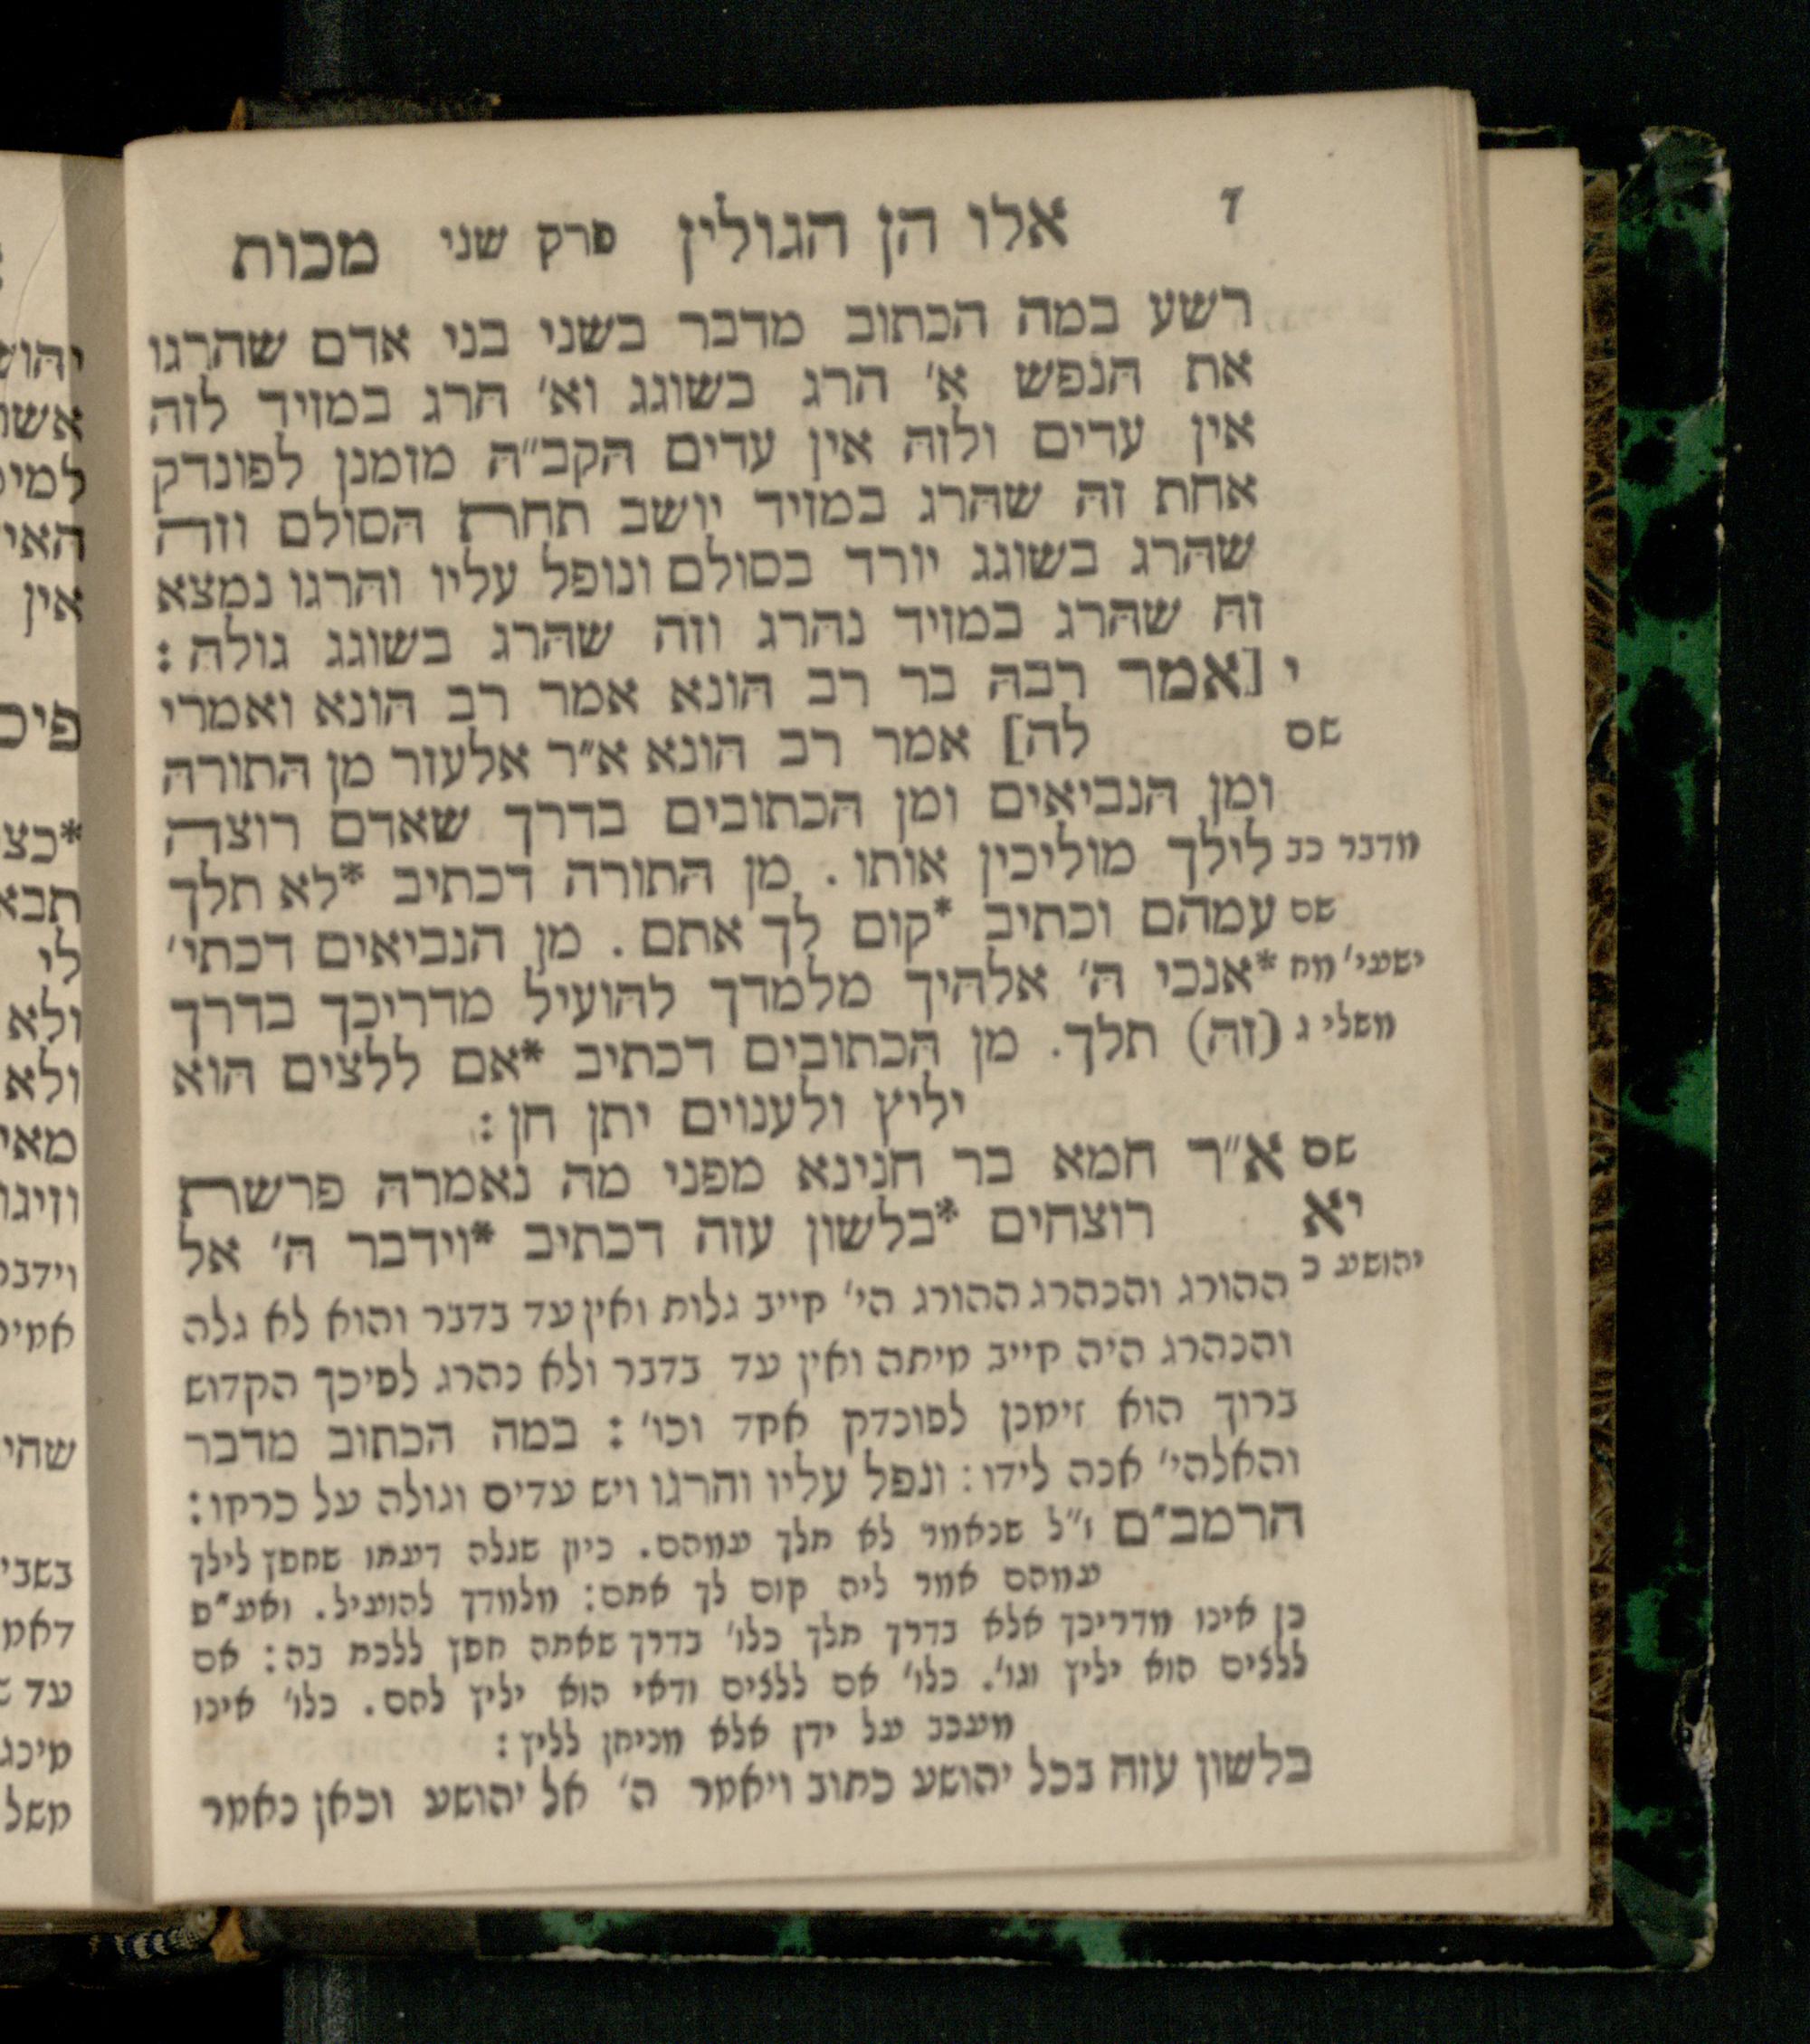 ד אלו הן הגולין פרק שני מכות
רשע במה הכתוב מדבר בשני בני אדם שהרגו
את הנפש א׳ הרג בשוגג וא׳ הרג במזיד לזה
אין עדים ולזה אין עדים הקב״ה מזמנן לפונדק
אחת זה שהרג במזיד יושב תחת הסולם וזה
שהרג בשוגג יורד בסולם ונופל עליו והרגו נמצא
זה שהרג במזיד נהרג וזה שהרג בשוגג גולה :
י [אמר רבה בר רב הונא אמר רב הונא ואמרי
שם לה] אמר רב הונא א״ר אלעזר מן התורה
ומן הנביאים ומן הכתובים בדרך שאדם רוצה
מדבר כב לילך מוליכין אותו . מן התורה דכתיב *לא תלך
שם עמהם וכתיב *קום לך אתם . מן הנביאים דכתי׳
ישעי׳ מח *אנכי ה׳ אלהיך מלמדך להועיל מדריכך בדרך
משלי ג (זה) תלך. מן הכתובים דכתיב *אם ללצים הוא
יליץ ולענוים יתן חן :
שם א״ר חמא בר חנינא מפני מה נאמרה פרשת
יא רוצחים *בלשון עזה דכתיב *וידבר ה׳ אל
יהושע כ
ההורג והנהרג ההורג הי׳ חייב גלות ואין עד בדבר והוא לא גלה
והנהרג היה חייב מיתה ואין עד בדבר ולא נהרג לפיכך הקדוש
ברוך הוא זימנן לפונדק אחד וכו׳ : במה הכתוב מדבר
והאלהי׳ אנה לידו : ונפל עליו והרגו ויש עדים וגולה על כרחו :
הרמב״ם ז״ל שנאמר לא תלך עמהם. כיון שגלה דעתו שחפץ לילך
עמהם אמר ליה קום לך אתם : מלמדך להועיל. ואע״פ
כן אינו מדריכך אלא בדרך תלך כלו׳ בדרך שאתה חפץ ללכת בה : אם
ללצים הוא יליץ וגו׳. כלו׳ אם ללצים ודאי הוא יליץ להם. כלו׳ אינו
מעכב על ידן אלא מניחן לליץ :
בלשון עזה בכל יהושע כתוב ויאמר ה׳ אל יהושע וכאן נאמר